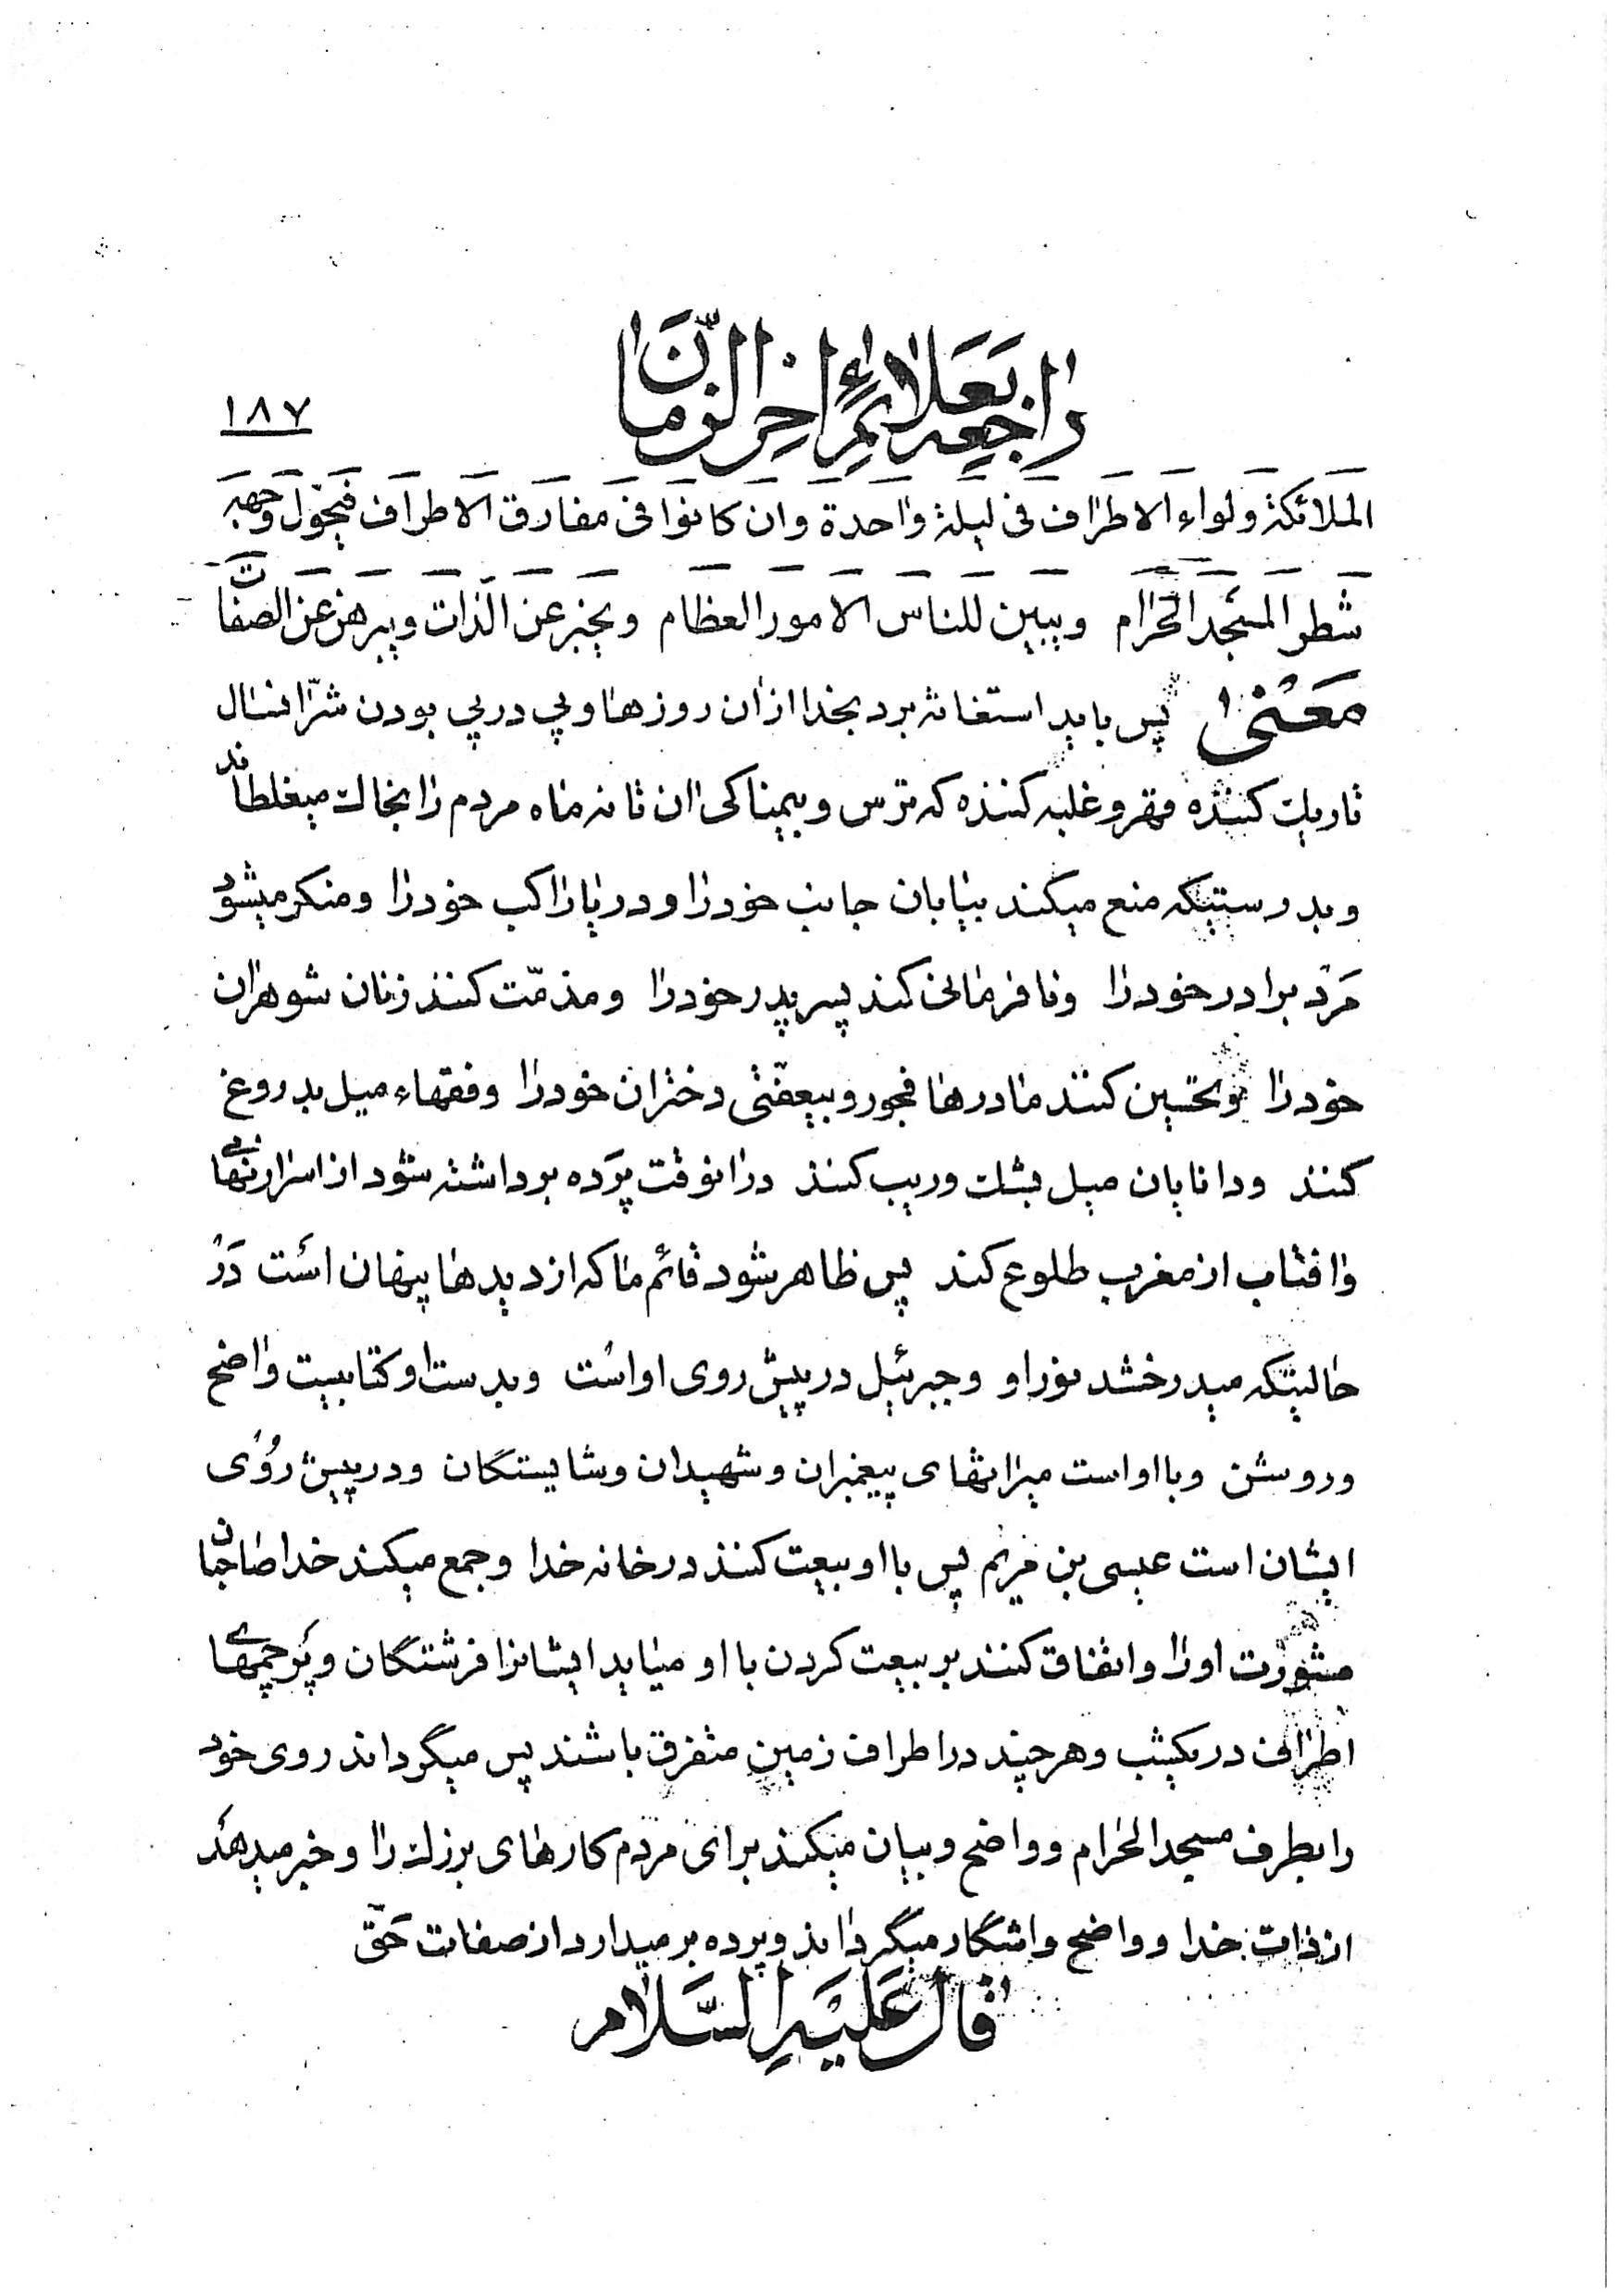 راجعه بعلائم اخر الزّمان
۱۸۷
الملائكة ولواء الاطراف فى ليلة واحدة وان كانوا فى مفارق الاطراف فيحوّل وجهه
شطر المسجد الحرام ويبين للناس الامور العظام ويخبر عن الذّات ويبرهن عن الصفّات
معنى پس بايد استغاثه برد بخدا از ان روزها و پى در پى بودن شرّ انسال
تاريك كننده قهر و غلبه كننده كه ترس و بيمناكى ان تا نه ماه مردم را بخاك ميغلطاند
و بدرستيكه منع ميكند بيابان جانب خود را و دريا راكب خود را و منكر ميشود
مرد برادر خود را و نافرمانى كند پسر پدر خود را و مذمّت كنند زنان شوهران
خود را و تحسين كنند مادرها فجور و بيعفّتى دختران خود را و فقهاء ميل بدروغ
كنند و دانايان ميل بشك و ريب كنند در انوقت پرده برداشته شود از اسرار نهانى
و افتاب از مغرب طلوع كند پس ظاهر شود قائم ما كه از ديدها پنهان است در
حاليتكه ميدرخشد نور او و جبرئيل در پيش روى او است و بدست او كتابيست واضح
و روشن و با او است ميراثهاى پيغمبران و شهيدان و شايستگان و در پيش روى
ايشان است عيسى بن مريم پس با او بيعت كنند در خانه خدا و جمع ميكند خدا صاحبان
مشورت او را و اتفاق كنند بر بيعت كردن با او ميايد ايشانرا فرشتگان و پرچمهاى
اطرافى در يكشب و هر چند در اطراف زمين متفرق باشند پس ميگرداند روى خود
را بطرف مسجد الحرام و واضح و بيان ميكند براى مردم كارهاى بزرك را و خبر ميدهد
از ذات خدا و واضح و اشكار ميگرداند و پرده بر ميدارد از صفات حقّ
قال عليه السّلام